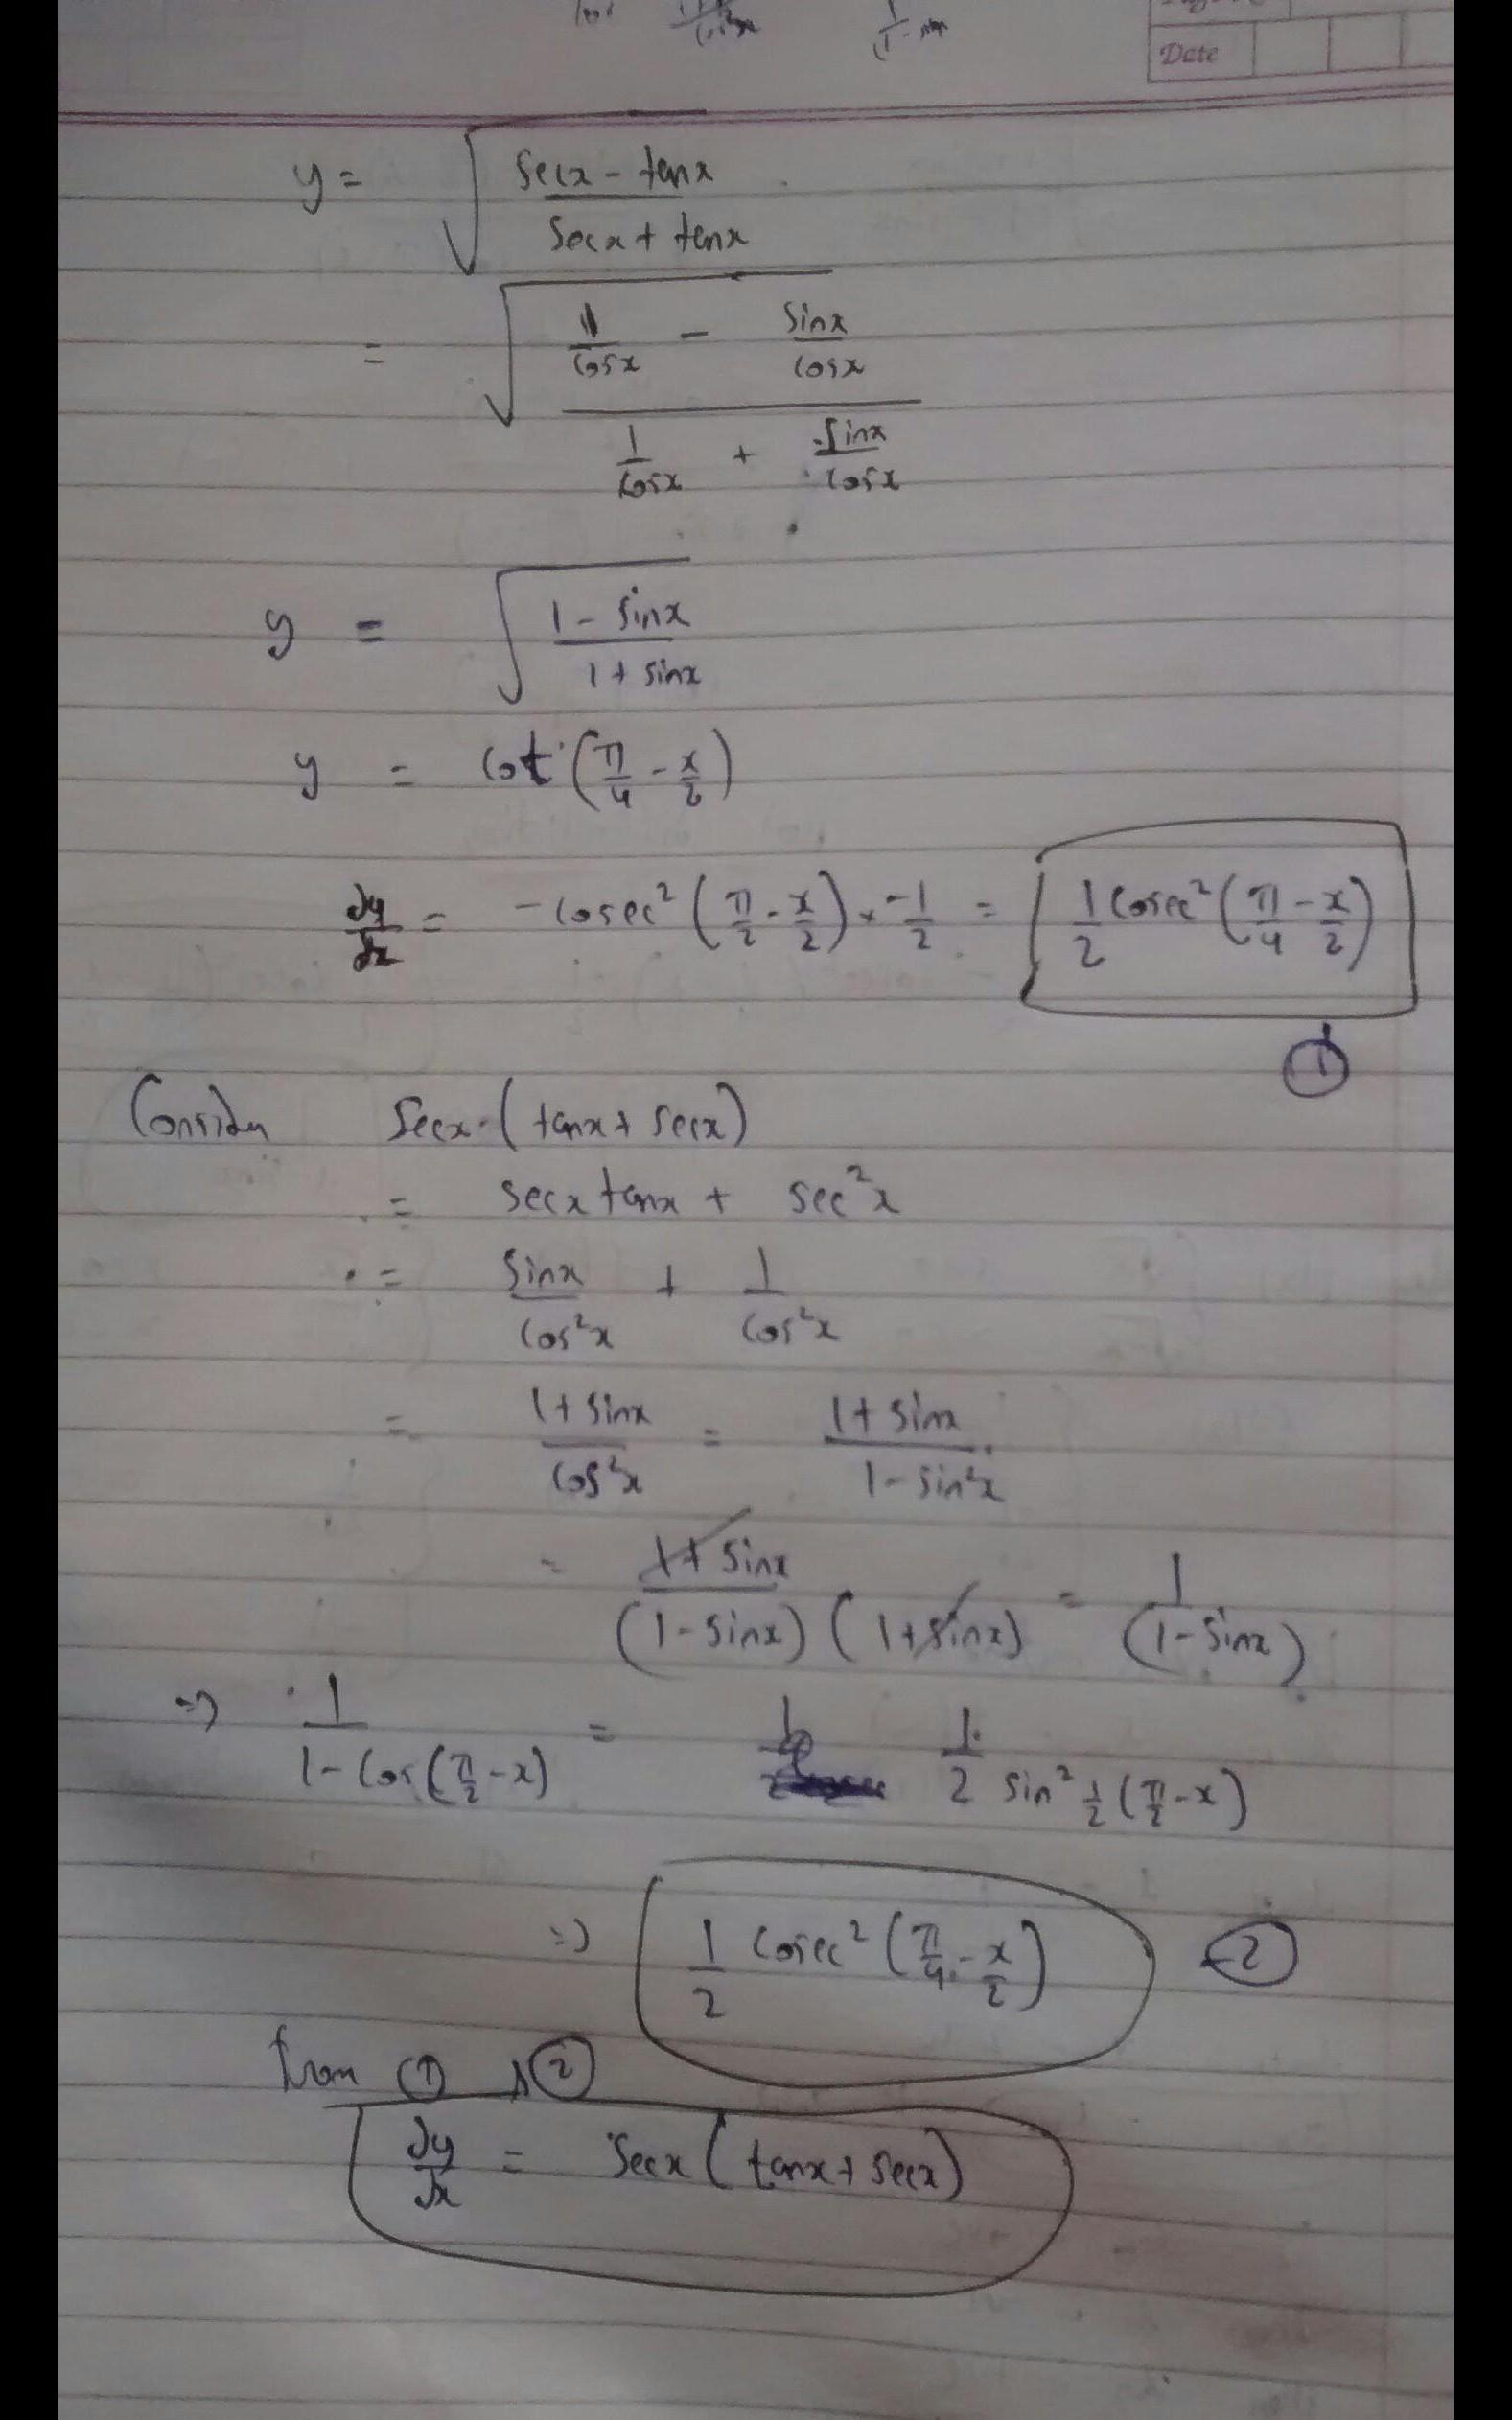 Date
y = √((secx - tanx)/(secx + tanx))
= √((1/cosx - sinx/cosx)/(1/cosx + sinx/cosx))
y = √((1 - sinx)/(1 + sinx))
y = cot(π/4 - x/2)
dy/dx = -cosec²(π/2 - x/2) × -1/2 = 1/2 cosec²(π/4 - x/2)
①
Consider secx·(tanx + secx)
= secx tanx + sec²x
= sinx/cos²x + 1/cos²x
= (1 + sinx)/cos²x = (1 + sinx)/(1 - sin²x)
= (1 + sinx)/((1 - sinx)(1 + sinx)) = 1/(1 - sinx)
=> 1/(1 - cos(π/2 - x)) = 1/(2 sin² 1/2 (π/2 - x))
=> 1/2 cosec²(π/4 - x/2) - ②
from ① ②
dy/dx = secx(tanx + secx)